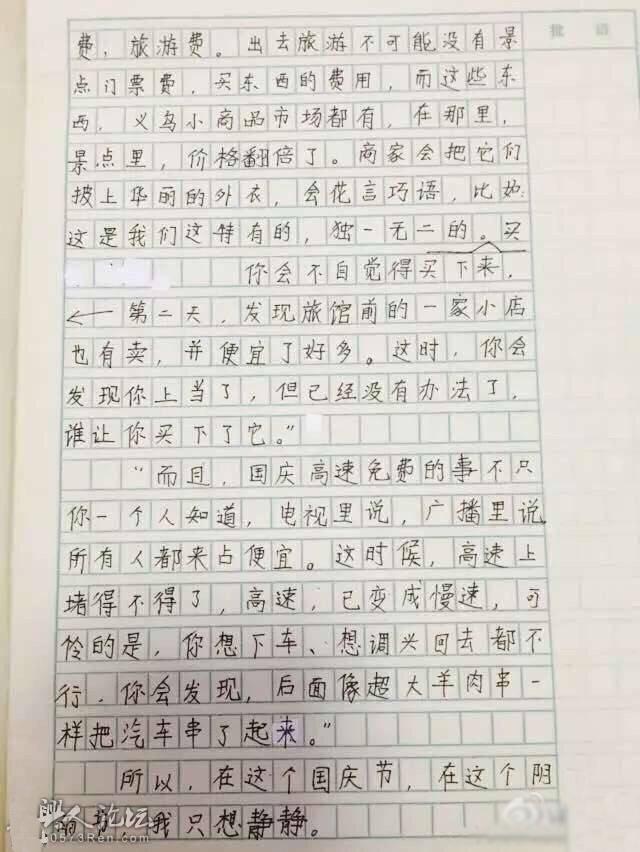 批 语
费,旅游费。出去旅游不可能没有景
点门票费,买东西的费用,而这些东
西,义乌小商品市场都有,在那里,
景点里,价格翻倍了。商家会把它们
披上华丽的外衣,会花言巧语,比如:
这是我们这特有的,独一无二的。买
你会不自觉得买下来,
← 第二天,发现旅馆前的一家小店
也有卖,并便宜了好多。这时,你会
发现你上当了,但已经没有办法了,
谁让你买下了它。”
“而且,国庆高速免费的事不只
你一个人知道,电视里说,广播里说
所有人都来占便宜。这时候,高速上
堵得不得了,高速,已变成慢速,可
伶的是,你想下车、想调兴回去都不
行.你会发现,后面像超大羊肉串一
样把汽车串了起来。”
所以,在这个国庆节,在这个阴
,我只想静静。
人论坛
0573Ren.com